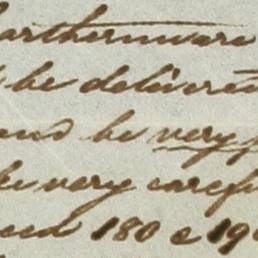 earthernware
be delivered
and be very
be very caref
eed 180 a 19